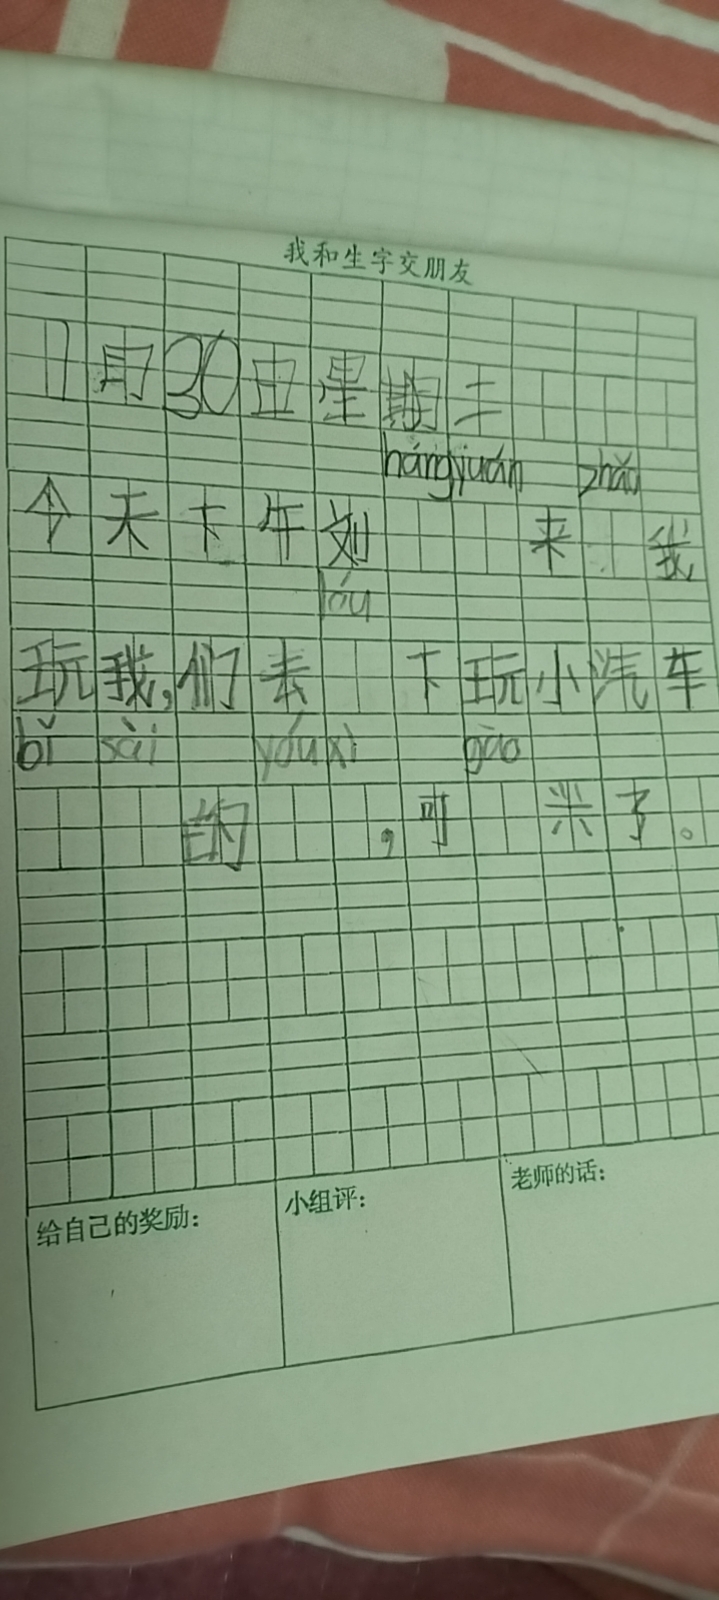 我和生字交朋友
11月30日星期二
hángyuán zhǎo
今天下午刘来我
lóu
玩我,们去下玩小汽车
bǐ sài yóu xì gāo
的,可米了。
给自己的奖励: 小组评: 老师的话: